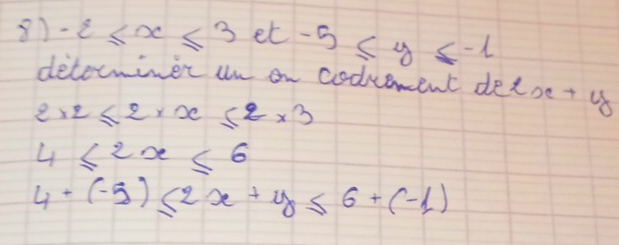 8) -2 ⩽ x ⩽ 3 et -5 ⩽ y ⩽ -1
déterminer un en codrement de 2x + y
2 × 2 ⩽ 2 × x ⩽ 2 × 3
4 ⩽ 2x ⩽ 6
4 + (-5) ⩽ 2x + y ⩽ 6 + (-1)